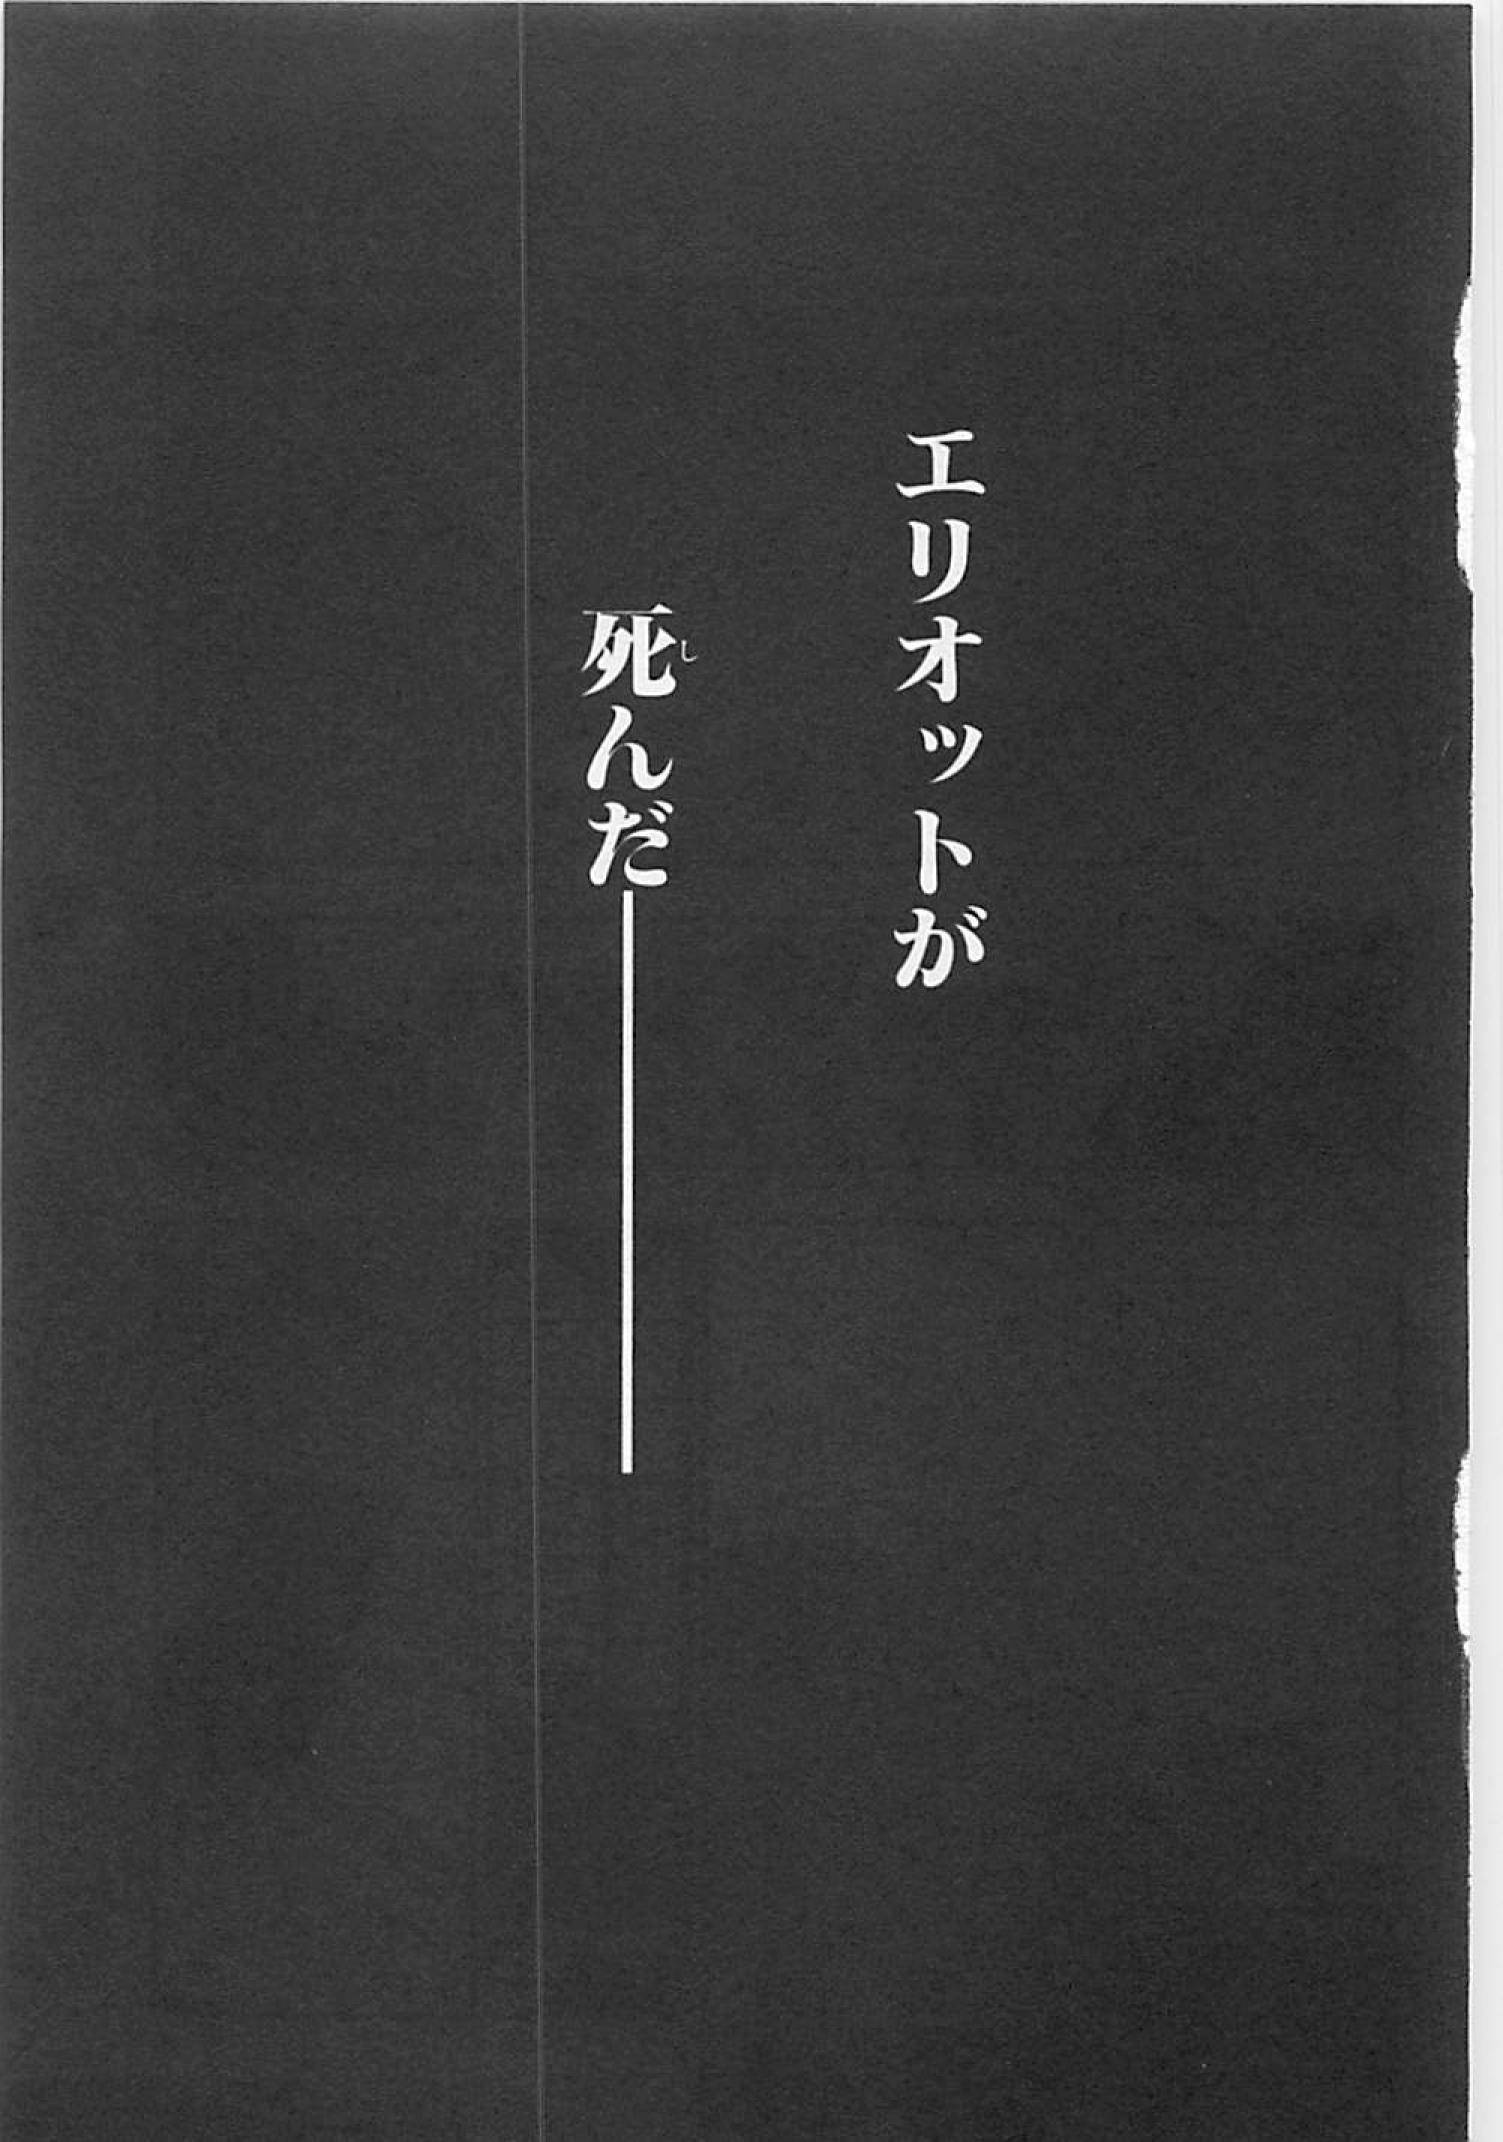 エリオットが
死んだ――――
し